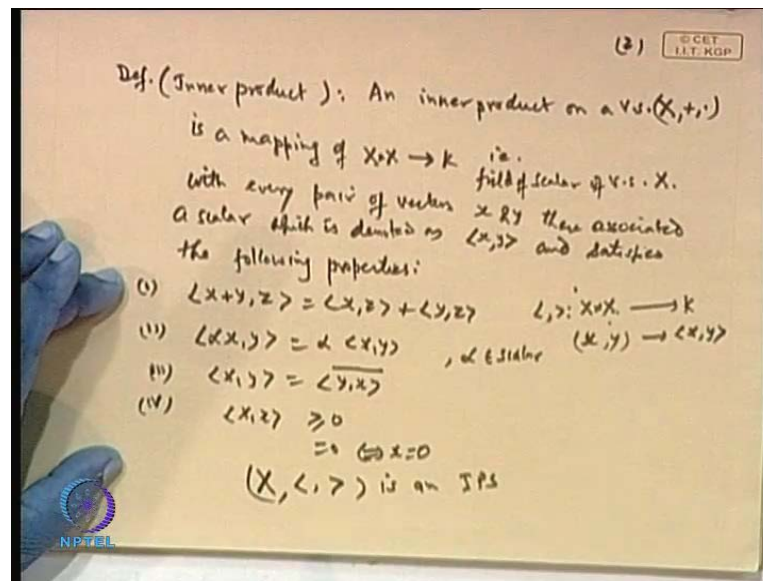 (2) © CET I.I.T. KGP
Def. (Inner product): An inner product on a v.s. (X,+,·)
is a mapping of X×X → K i.e.
field of scalar of v.s. X.
with every pair of vectors x & y there associated
a scalar which is denoted as <x,y> and satisfies
the following properties:
(i) <x+y,z> = <x,z> + <y,z> <,>: X×X → K
(ii) <αx,y> = α <x,y> , α ∈ scalar (x,y) → <x,y>
(iii) <x,y> = \overline{<y,x>}
(iv) <x,x> ≥ 0
=0 ⇔ x=0
(X, <,>) is an IPS
NPTEL